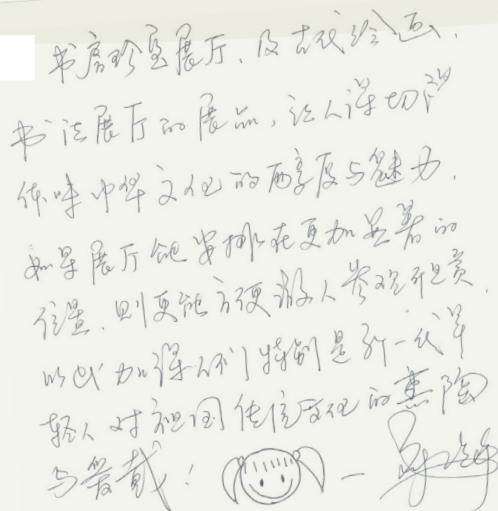 书斋珍玺展厅、及古代绘画、
书法展厅的展品，让人深切
体味中华文化的厚度与魅力，
如果展厅能安排在更加显著的
位置，则更能方便游人参观和欣赏，
以此加深人们特别是新一代年
轻人对祖国传统文化的熏陶
与爱戴！